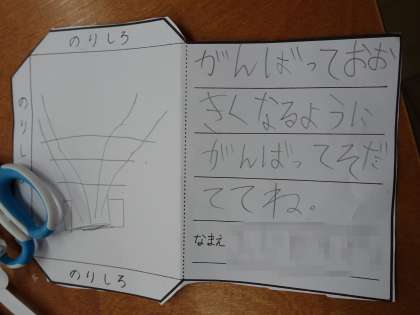 のりしろ
のりし
のりしろ
がんばっておお
きくなるように
がんばってそだ
ててね。
なまえ